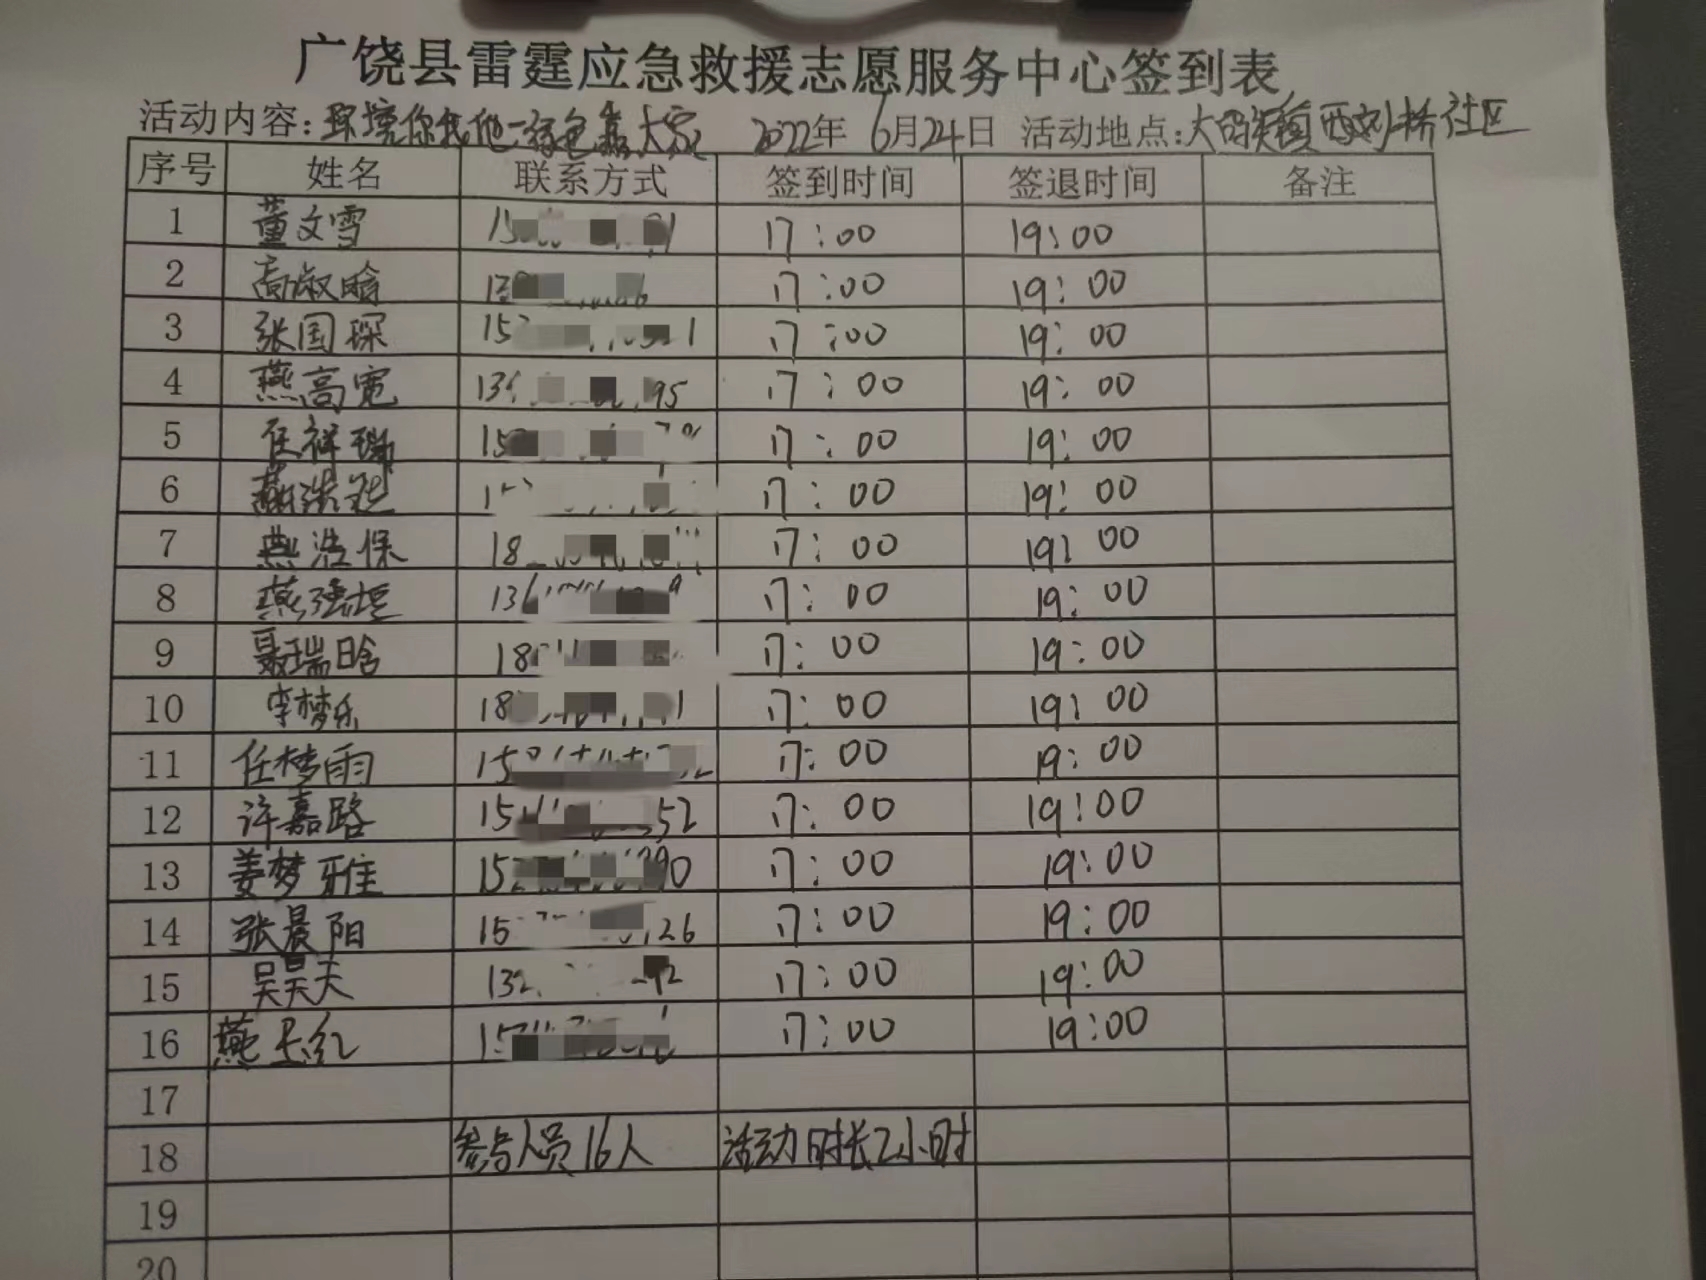 广饶县雷霆应急救援志愿服务中心签到表
活动内容:环境你我他 绿色靠大家 2022年 6月24日 活动地点:大码头镇西刘桥社区
序号 姓名 联系方式 签到时间 签退时间 备注
1 董文雪 17:00 19:00
2 高淑晗 17:00 19:00
3 张国琛 17:00 19:00
4 燕高宽 17:00 19:00
5 任祥瑞 17:00 19:00
6 17:00 19:00
7 燕浩保 17:00 19:00
8 燕强垣 17:00 19:00
9 聂瑞晗 17:00 19:00
10 李梦乐 17:00 19:00
11 任梦雨 17:00 19:00
12 许嘉路 17:00 19:00
13 姜梦雅 17:00 19:00
14 张晨阳 17:00 19:00
15 吴昊天 17:00 19:00
16 燕玉红 17:00 19:00
17
18 参与人员16人 活动时长2小时
19
20